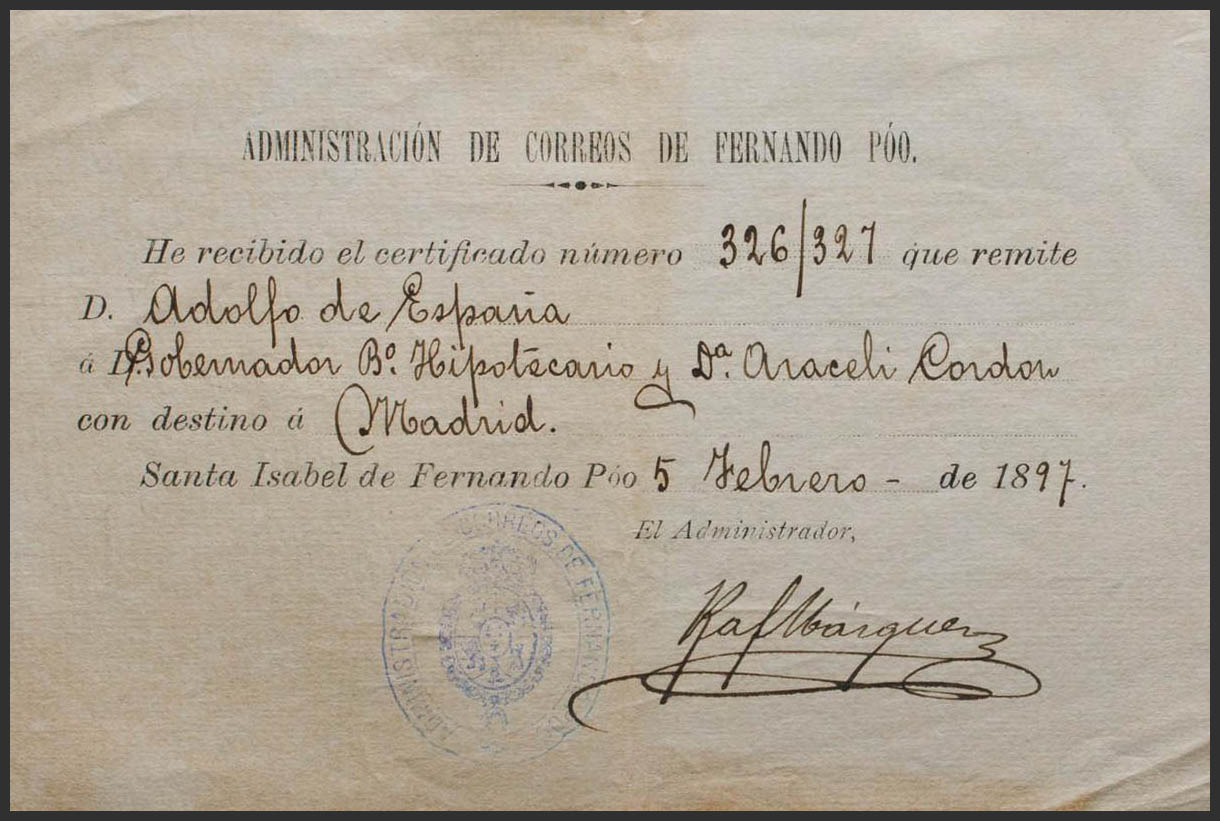 ADMINISTRACIÓN DE CORREOS DE FERNANDO PÓO.
He recibido el certificado número 326/327 que remite
D. Adolfo de España
á D. Gobernador Bº. Hipotecario y Dª. Araceli Cordon
con destino á Madrid.
Santa Isabel de Fernando Póo 5 Febrero - de 1897.
El Administrador,
Raf Márquez
ADMINISTRACIÓN CORREOS DE FERNANDO